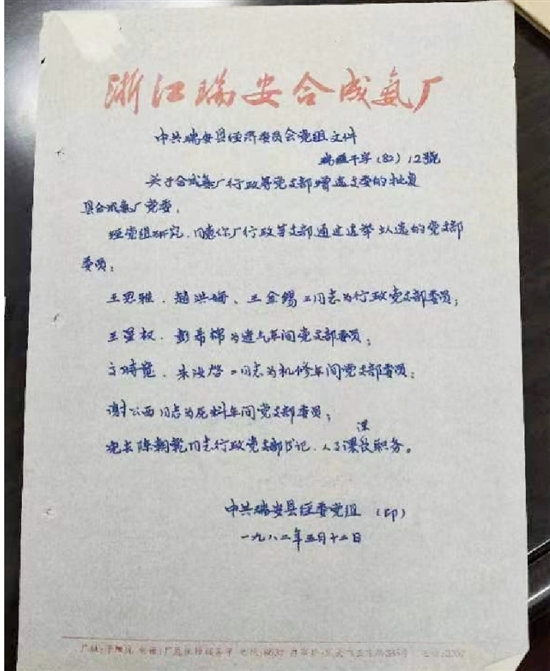 浙江瑞安合成氨厂
中共瑞安县经济委员会党组文件
瑞经干字(82)12号
关于合成氨厂行政等党支部增选支委的批复
县合成氨厂党委:
经党组研究,同意你厂行政等支部通过选举以选的党支部
委员:
王思雅、赵洪梅、王金锡三同志为行政党支部委员;
王显权、彭希棉为造气车间党支部委员;
朱汝啓二同志为机修车间党支部委员;
谢公西同志为尿料车间党支部委员;
免去陈朝乾同志行政党支部书记、职务。
中共瑞安县经委党组 (印)
一九八二年五月十二日